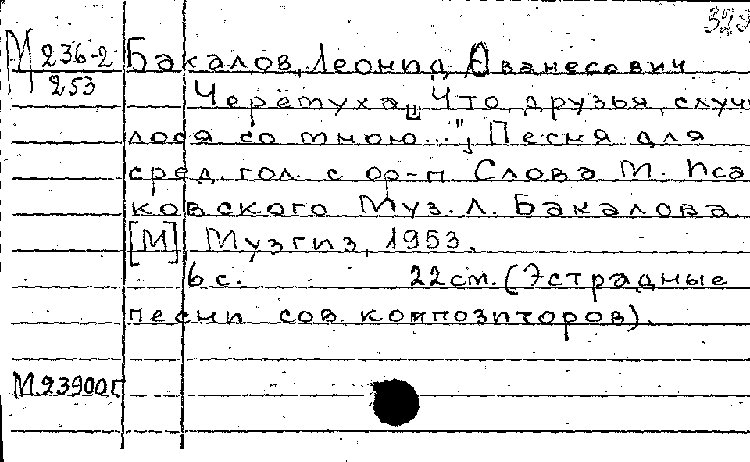 323
М 236-2
253
Бакалов, Леонид Ованесович
Черёмуха. „Что друзья, случи
лося со мною...", Песня для
сред. гол. с ф-п Слова М. Иса
ковского Муз. Л. Бакалова
[М], Музгиз, 1953.
6 с. 22 см. (Эстрадные
песни сов. композиторов).
М.23900г